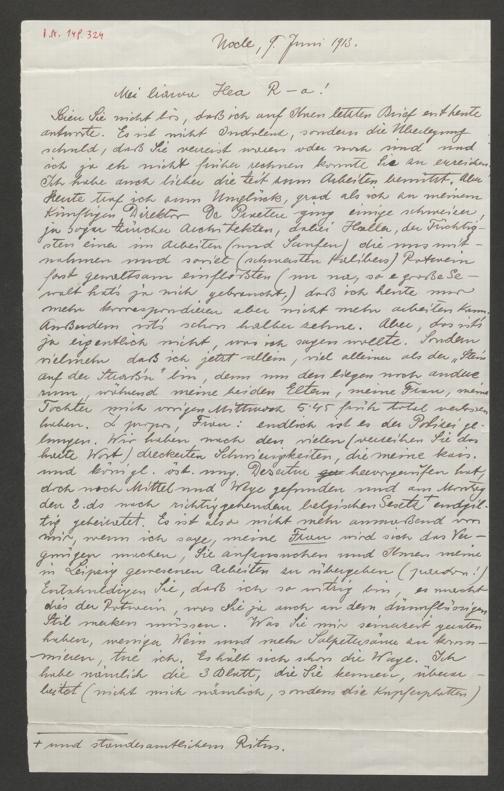 I.N. 148.324
9. Juni 1913.
Mein lieber Herr R-a!
Seien Sie nicht bös, daß ich auf Ihren letzten Brief erst heute
antworte. Es ist nicht Indolenz, sondern die Überlegung
schuld, daß Sie verreist waren oder noch sind und
ich ja eh nicht früher rechnen konnte Sie zu erreichen.
Ich habe auch lieber die Zeit zum Arbeiten benutzt. Aber
heute traf ich zum Unglück, grad als ich zu meinem
künftigen Direktor De Praetere ging einige schweizer,
ja sogar züricher Architekten, dabei Haller, der Tüchtig-
sten einer im Arbeiten (und Saufen) die uns mit-
nahmen und soviel (schwersten Kalibers) Rotwein
fast gewaltsam einflößten (nu na, so e große Ge-
walt hats ja nich gebraucht,) daß ich heute nur
mehr korrespondieren aber nicht mehr arbeiten kann.
Außerdem ists schon halber zehne. Aber, das ists
ja eigentlich nicht, was ich sagen wollte. Sondern
vielmehr daß ich jetzt allein, viel alleiner als der „Stein
auf der Straß'n" bin, denn um den liegen noch andere
rum, während meine beiden Eltern, meine Frau, meine
Tochter mich vorigen Mittwoch 5.45 früh total verlassen
haben. À propos, Frau: endlich ist es der Polizei ge-
lungen. Wir haben nach den vielen (verzeihen Sie das
harte Wort) drecketen Schwierigkeiten, die meine kais.
und königl. öst. ung. Desertur hervorgerufen hat,
doch noch Mittel und Wege gefunden und am Montag
den 2. ds nach richtiggehendem belgischen Gesetz + endgil-
tig geheiratet. Es ist also nicht mehr anmaßend von
mir, wenn ich sage, meine Frau wird sich das Ver-
gnügen machen, Sie aufzusuchen und Ihnen meine
in Leipzig gewesenen Arbeiten zu übergeben (pardon!)
Entschuldigen Sie, daß ich so witzig bin, es macht
dies der Rotwein, was Sie ja auch an dem dünnflüssigen
Stil merken müssen. Was Sie mir seinerzeit geraten
haben, weniger Wein und mehr Salpetersäure zu konsu-
mieren, tue ich. Es hält sich schon die Wage. Ich
habe nämlich die 3 Blatt, die Sie kennen, überar-
beitet (nicht mich nämlich, sondern die Kupferplatten)
+ und standesamtlichem Ritus.